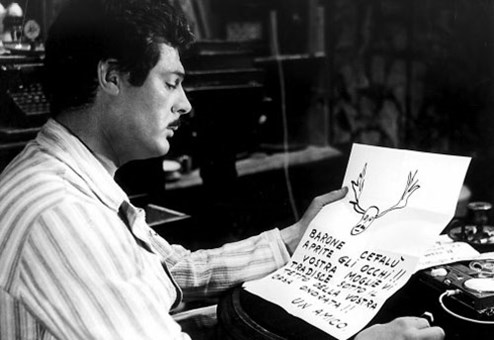 BARONE CEFALÙ
APRITE GLI OCCHI!!
VOSTRA MOGLIE VI
TRADISCE SOTTO IL
TETTO DELLA VOSTRA
CASA ONORATA!!!
UN AMICO